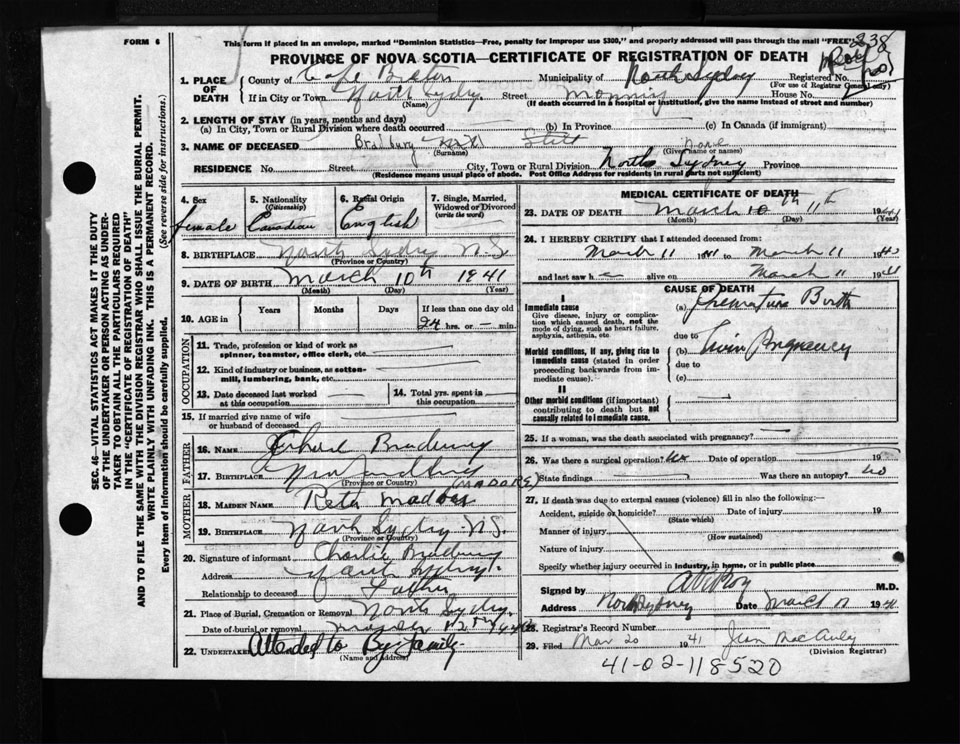 FORM 6
This form if placed in an envelope, marked "Dominion Statistics—Free, penalty for improper use $300," and properly addressed will pass through the mail "FREE"
238
PROVINCE OF NOVA SCOTIA—CERTIFICATE OF REGISTRATION OF DEATH
1. PLACE OF DEATH County of Cape Breton Municipality of North Sydney Registered No.
(For use of Registrar General only)
If in City or Town North Sydney Street House No.
(Name) (If death occurred in a hospital or institution, give name instead of street and number)
2. LENGTH OF STAY (in years, months and days)
(a) In City, Town or Rural Division where death occurred (b) In Province (c) In Canada (if immigrant)
3. NAME OF DECEASED Bradbury None
(Surname) (Given name or names)
RESIDENCE No. Street City, Town or Rural Division North Sydney Province
(Residence means usual place of abode. Post Office Address for residents in rural parts not sufficient)
4. Sex 5. Nationality (Citizenship) 6. Racial Origin 7. Single, Married, Widowed or Divorced (write the word)
female Canadian English
8. BIRTHPLACE North Sydney N.S
(Province or Country)
9. DATE OF BIRTH March 10th 1941
(Month) (Day) (Year)
10. AGE in Years Months Days If less than one day old
24 hrs. or — min.
OCCUPATION
11. Trade, profession or kind of work as spinner, teamster, office clerk, etc.
12. Kind of industry or business, as cotton-mill, lumbering, bank, etc.
13. Date deceased last worked at this occupation 14. Total yrs. spent in this occupation
15. If married give name of wife or husband of deceased
FATHER
16. NAME Bradbury
17. BIRTHPLACE
(Province or Country) (MADORE)
MOTHER
18. MAIDEN NAME
19. BIRTHPLACE North Sydney N.S.
(Province or Country)
20. Signature of informant Charlie Bradbury
Address North Sydney
Relationship to deceased Father
21. Place of Burial, Cremation or Removal North Sydney.
Date of burial or removal March 12th
22. UNDERTAKER Attended to By family
(Name and address)
MEDICAL CERTIFICATE OF DEATH
23. DATE OF DEATH March 10th 11th 19
(Month) (Day) (Year)
24. I HEREBY CERTIFY that I attended deceased from
March 11 1941 to March 11 19
and last saw h alive on March 11 1941
CAUSE OF DEATH
I
Immediate cause
Give disease, injury or complication which caused death, not the mode of dying, such as heart failure, asphyxia, asthenia, etc.
(a) Premature Birth
due to
Morbid conditions, if any, giving rise to immediate cause (stated in order proceeding backwards from immediate cause).
(b) Twin Pregnancy
due to
(c)
II
Other morbid conditions (if important) contributing to death but not causally related to immediate cause.
25. If a woman, was the death associated with pregnancy?
26. Was there a surgical operation? No Date of operation 19
State findings Was there an autopsy? No
27. If death was due to external causes (violence) fill in also the following:—
Accident, suicide or homicide? Date of injury 19
(State which)
Manner of injury
(How sustained)
Nature of injury
Specify whether injury occurred in industry, in home, or in public place
Signed by M.D.
Address North Sydney Date March 11 1941
28. Registrar's Record Number
29. Filed Mar 20 1941 Jean MacAuley
(Division Registrar)
41-02-118520
SEC. 46—VITAL STATISTICS ACT MAKES IT THE DUTY
OF THE UNDERTAKER OR PERSON ACTING AS UNDERTAKER TO OBTAIN ALL THE PARTICULARS REQUIRED
IN THE "CERTIFICATE OF REGISTRATION OF DEATH"
AND TO FILE THE SAME WITH THE DIVISION REGISTRAR WHO SHALL ISSUE THE BURIAL PERMIT.
WRITE PLAINLY WITH UNFADING INK. THIS IS A PERMANENT RECORD.
Every item of information should be carefully supplied. (See reverse side for instructions.)